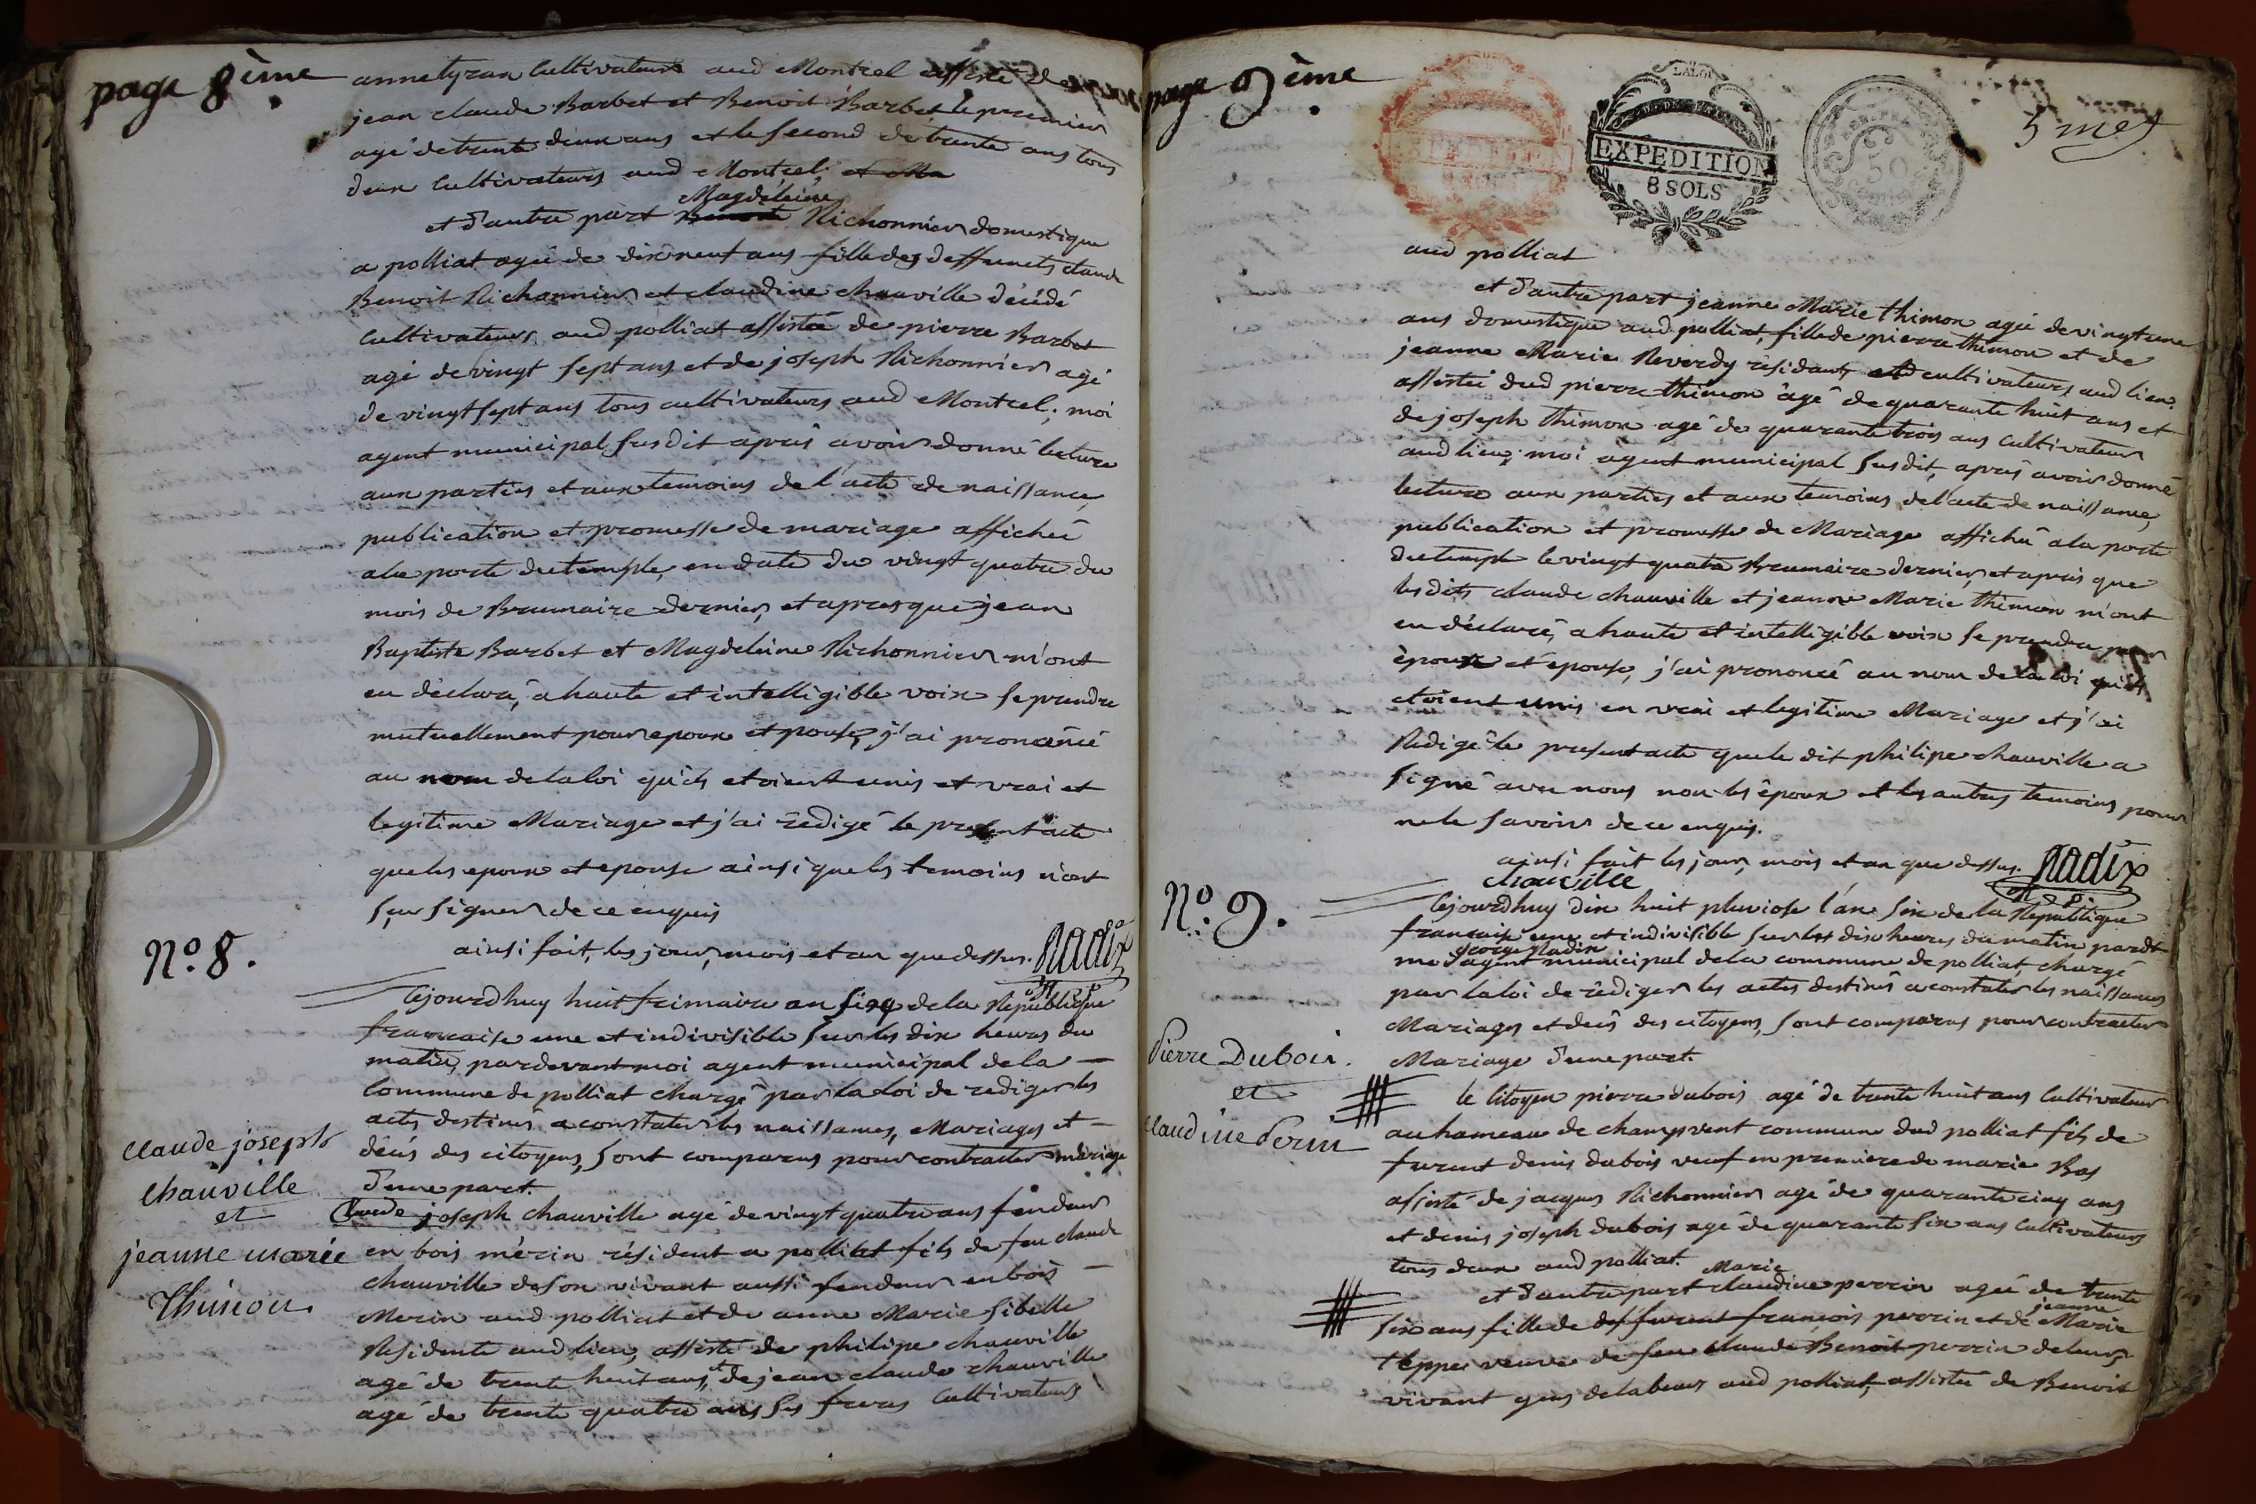 page 8ème
anne tyran Cultivateurs aud Montcel assisté de
jean claude Barbet et Benoit Barbet le premier
agé de trente deux ans et le second de trente ans tous
deux Cultivateurs aud Montcel;
Magdeleine
et d'autre part Richonnier domestique
a polliat agée de dix neuf ans fille des deffuncts claude
Benoit Richonnier et claudine chauville décédé
Cultivateurs aud polliat assistée de pierre Barbet
agé de vingt sept ans et de joseph Richonnier agé
de vingt sept ans tous cultivateurs aud Montcel; moi
agent municipal susdit après avoir donné lecture
aux parties et aux temoins de l'acte de naissance,
publication et promesse de mariage affichée
a la porte du temple, en date du vingt quatre du
mois de Brumaire dernier, et apres que jean
Baptiste Barbet et Magdeleine Richonnier m'ont
eu déclaré, a haute et intelligible voix se prendre
mutuellement pour epoux et epouse, j'ai prononcé
au nom de la loi qu'ils etoient unis et vrai et
legitime Mariage et j'ai rédigé le present acte
que les epoux et epouse ainsi que les temoins n'ont
seu signer de ce enquis
ainsi fait, les jour, mois et an que dessus. Nadix
N.º 8.
Cejourdhuy huit frimaire an six de la Republique
francaise une et indivisible sur les dix heures du
matin, pardevant moi agent municipal de la
Commune de polliat chargé par la loi de rediger les
actes destinés a constater les naissances, Mariages et
décés des citoyens, sont comparus pour contracter mariage
d'une part.
claude joseph
chauville
et
jeanne marie
Thimon.
Claude joseph chauville agé de vingt quatre ans fendeur
en bois mérin résident a polliat fils de feu claude
chauville de son vivant aussi fendeur en bois
Merin aud polliat et de anne Marie Sibelle
Residente aud lieu, assisté de philipe chauville
agé de trente huit ans, et de jean claude chauville
agé de trente quatre ans ses freres Cultivateurs
page 9ème
LA LOI
EXPEDITION
8 SOLS
50
5 me
aud polliat
et d'autre part jeanne Marie thimon agée de vingt une
ans domestique aud polliat, fille de pierre thimon et de
jeanne Marie Reverdy résidants et cultivateurs aud lieu.
assistée dud pierre thimon âgé de quarante huit ans et
de joseph thimon agé de quarante trois ans Cultivateurs
aud lieu; moi agent municipal susdit, après avoir donné
lecture aux parties et aux temoins de l'acte de naissance,
publication et promesse de Mariage affiché a la porte
du temple le vingt quatre Brumaire dernier, et après que
les dits claude chauville et jeanne Marie thimon m'ont
eu déclaré, a haute et intelligible voix se prendre pour
époux et épouse, j'ai prononcé au nom de la loi qu'ils
etoient unis en vrai et legitime Mariage et j'ai
Redigé le present acte que le dit philipe chauville a
signé avec nous non les époux et les autres temoins pour
ne le savoir de ce enquis.
ainsi fait les jour, mois et an que dessus. Nadix
chauville
N.º 9.
Cejourdhuy dix huit pluviose l'an six de la Republique
francaise une et indivisible sur les dix heures du matin pardt
george Nadix
moi agent municipal de la commune de polliat, chargé
par la loi de rédiger les actes destinés a constater les naissances
Mariages et decés des citoyens, sont comparus pour contracter
Mariage d'une part.
Pierre Duboi.
et
claudine Perrin
le Citoyen pierre dubois agé de trente huit ans Cultivateur
au hameau de champvent commune dud polliat fils de
furent denis dubois veuf en premiere de marie Bas
assisté de jacques Richonnier agé de quarante cinq ans
et denis joseph dubois agé de quarante six ans Cultivateurs
tous deux aud polliat.
Marie
et d'autre part claudine perrin agée de trente
jeanne
six ans fille de furent françois perrin et de Marie
teppe veuve de feu claude Benoit perrin de leur
vivant gens de labeur aud polliat, assistée de Benoit